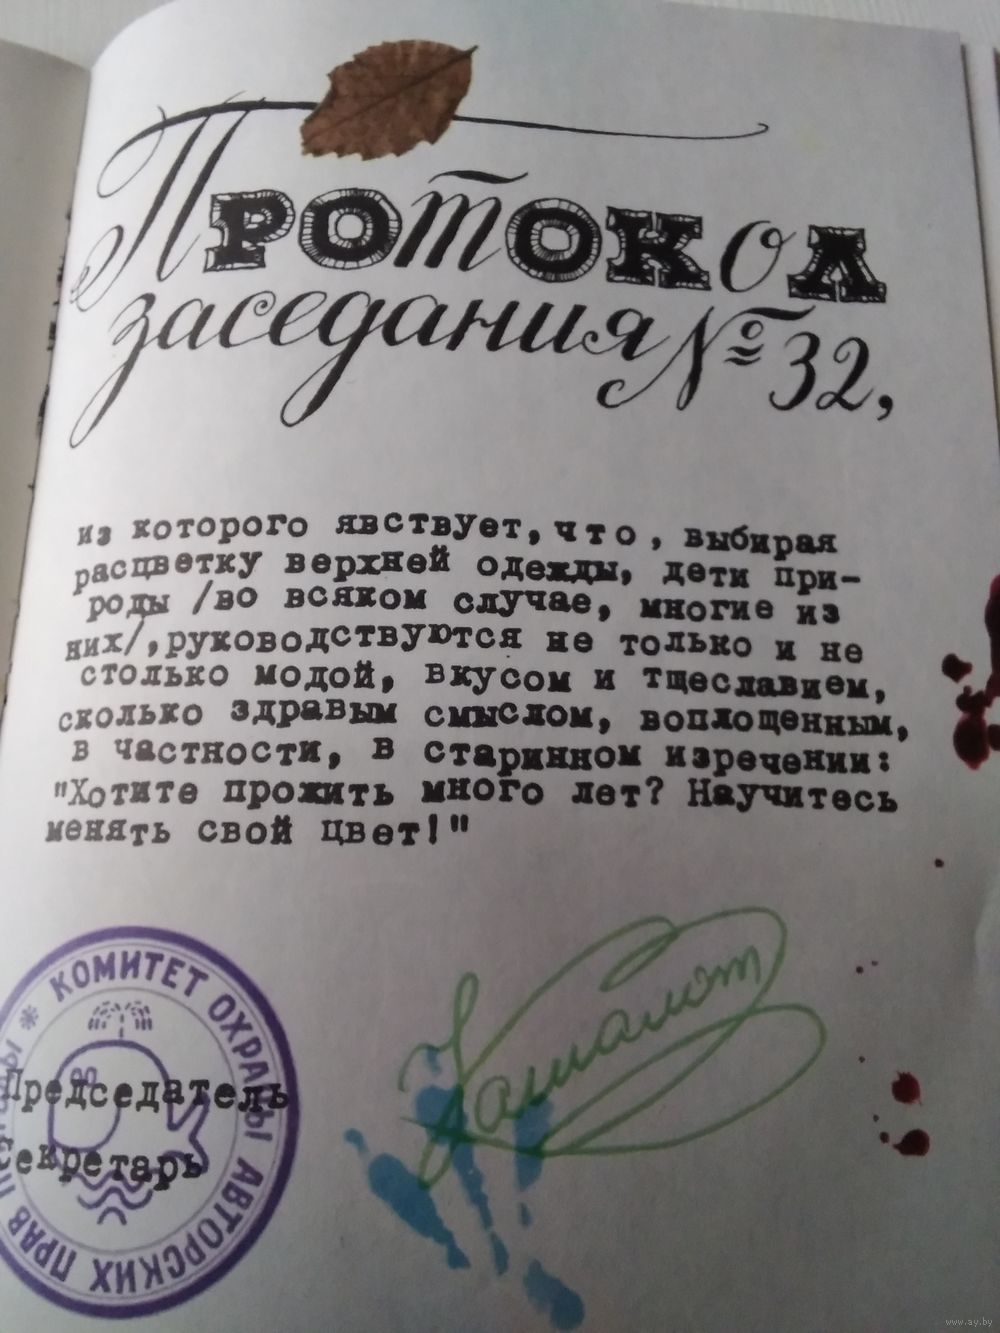 Протокол
заседания № 32,
из которого явствует, что, выбирая
расцветку верхней одежды, дети при-
роды /во всяком случае, многие из
них/, руководствуются не только и не
столько модой, вкусом и тщеславием,
сколько здравым смыслом, воплощенным,
в частности, в старинном изречении:
"Хотите прожить много лет? Научитесь
менять свой цвет!"
* КОМИТЕТ ОХРАНЫ АВТОРСКИХ ПРАВ
Председатель
Кашалот
секретарь
www.ay.by